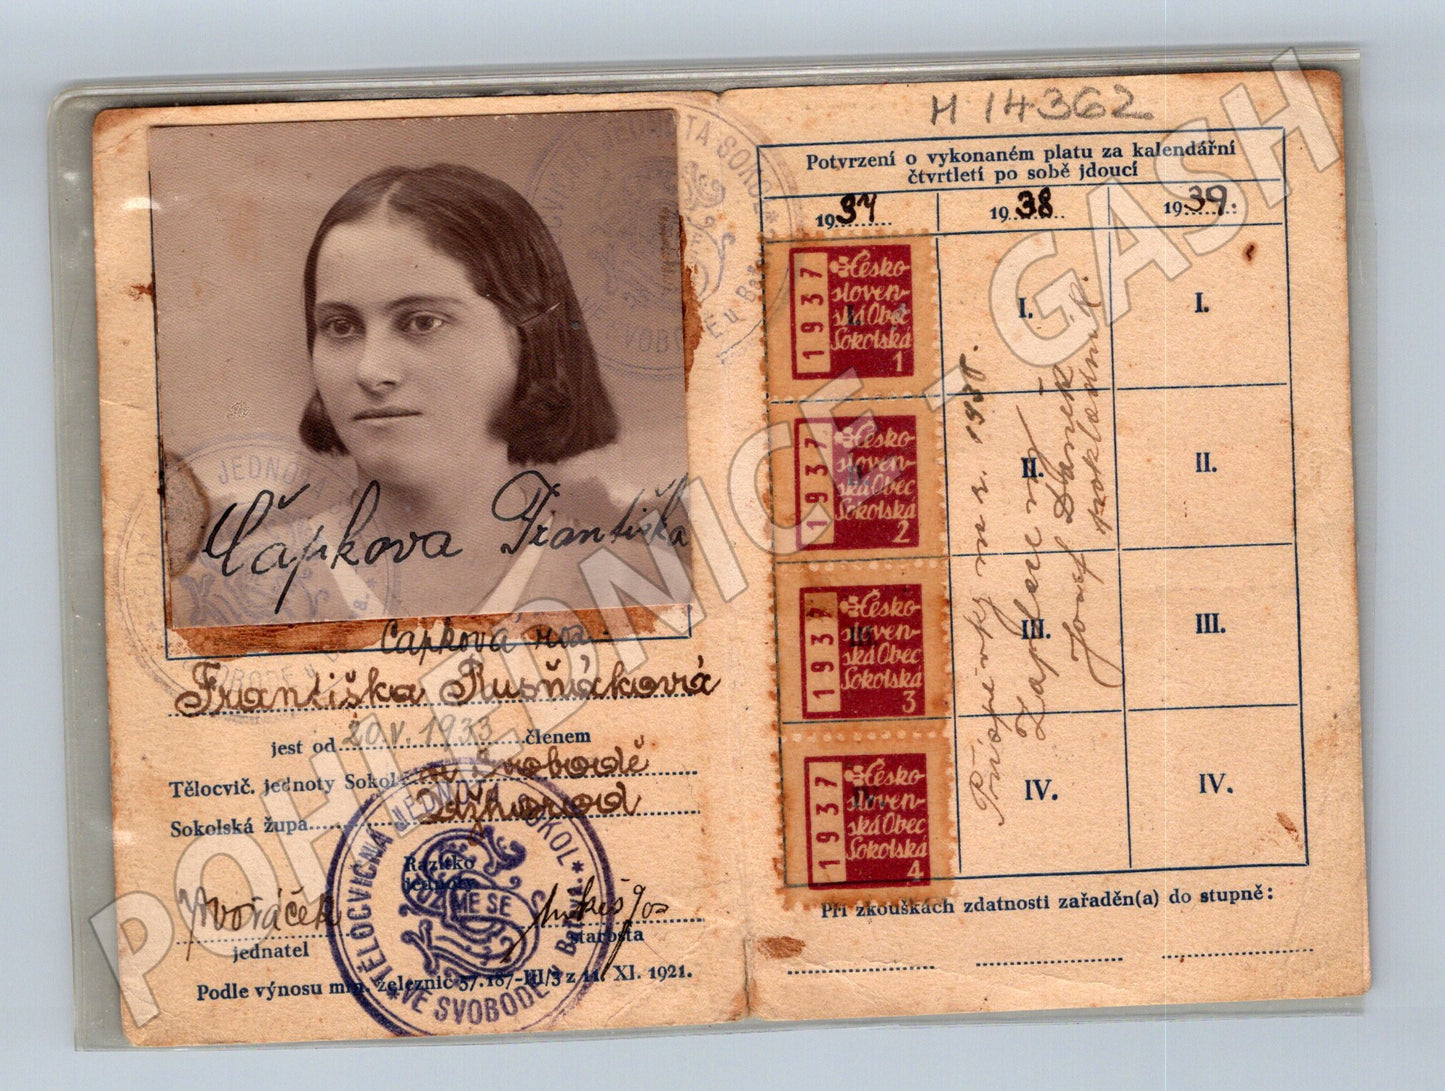 JEDNOTA SOKOL
VE SVOBODĚ u Bat
JEDNOTA
SVOBODĚ u
Čapkova Františka
Čapková roz.
Františka Rusňáková
jest od 20.V. 1933 členem
Tělocvič. jednoty Sokol v Svobodě
Sokolská župa Užhorod
Razítko
jednoty
TĚLOCVIČNÁ JEDNOTA SOKOL
VE SVOBODĚ u Batvě.
Dvořáček
jednatel
starosta
Podle výnosu min. železnic 57.187-III/3 z 11. XI. 1921.
M 14362
Potvrzení o vykonaném platu za kalendářní
čtvrtletí po sobě jdoucí
1937 1938 1939.
1937
Česko-
sloven-
ská Obec
Sokolská
1
I. I.
1937
Česko-
sloven-
ská Obec
Sokolská
2
II. II.
1937
Česko-
sloven-
ská Obec
Sokolská
3
III. III.
1937
Česko-
sloven-
ská Obec
Sokolská
4
IV. IV.
Příspěvky na r. 1938.
Josef Daněk
pokladník.
Při zkouškách zdatnosti zařaděn(a) do stupně:
POHLEDNICE - GASH